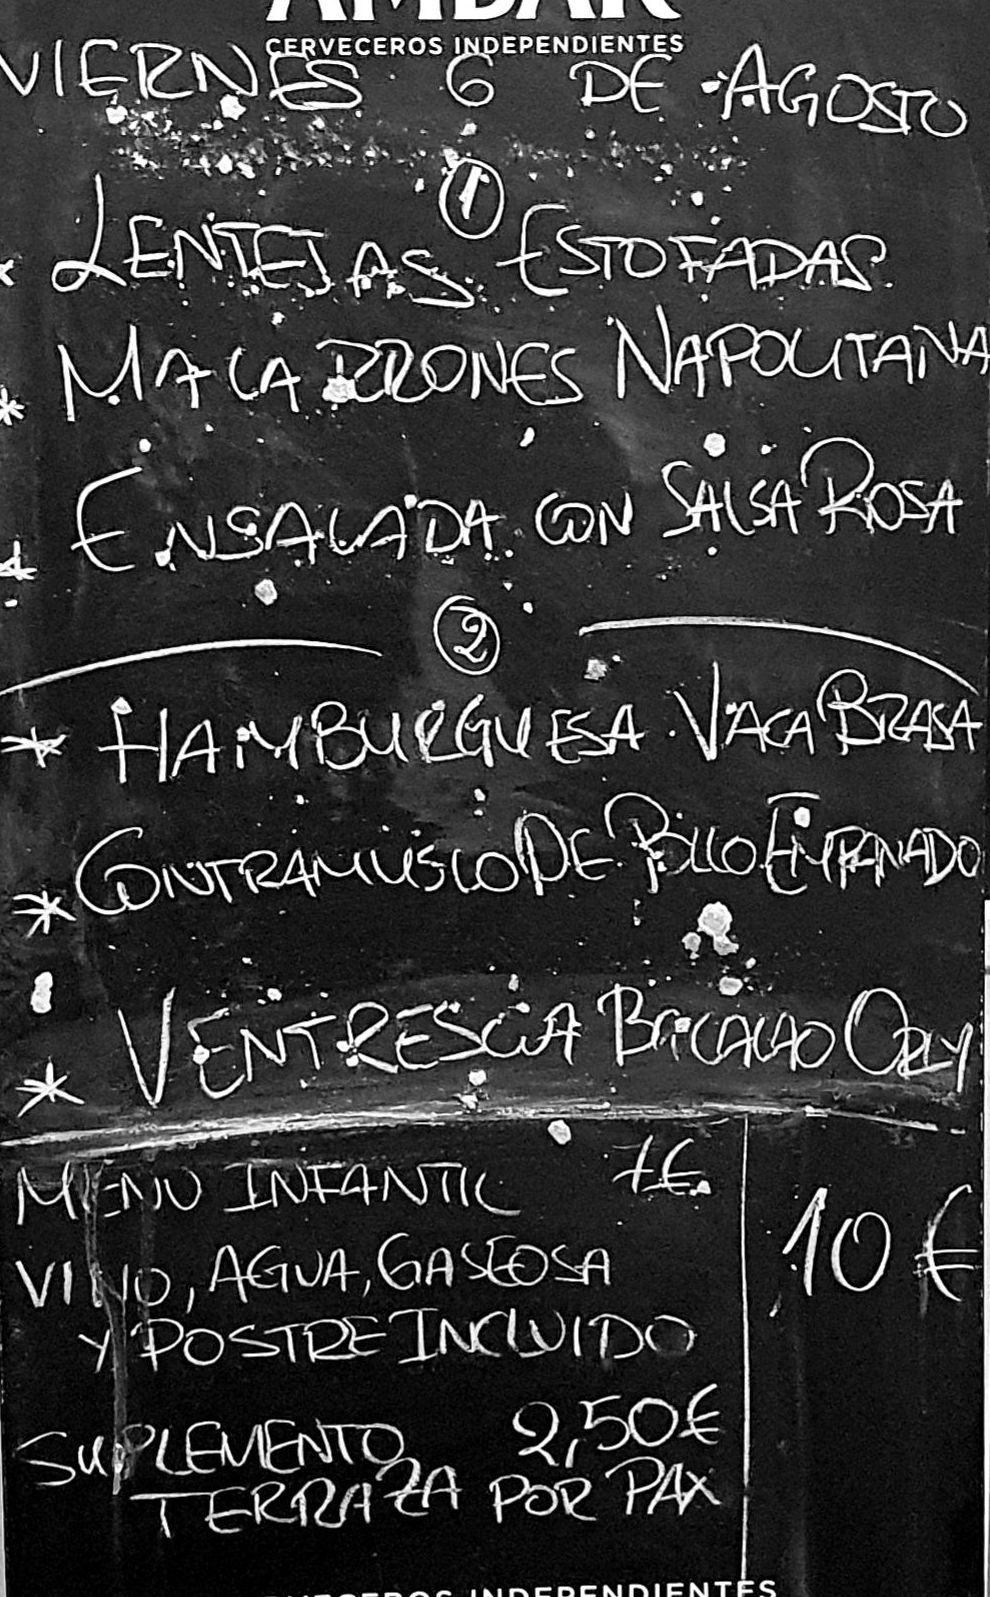 AMBAR
CERVECEROS INDEPENDIENTES
VIERNES 6 DE AGOSTO
1
* LENTEJAS ESTOFADAS
* MACARRONES NAPOLITANA
* ENSALADA CON SALSA ROSA
2
* HAMBURGUESA VACA BRASA
* CONTRAMUSLO DE POLLO EMPANADO
* VENTRESCA BACALAO ORLY
MENU INFANTIL 7€
10 €
VINO, AGUA, GASEOSA
Y POSTRE INCLUIDO
SUPLEMENTO 2,50€
TERRAZA POR PAX
CERVECEROS INDEPENDIENTES